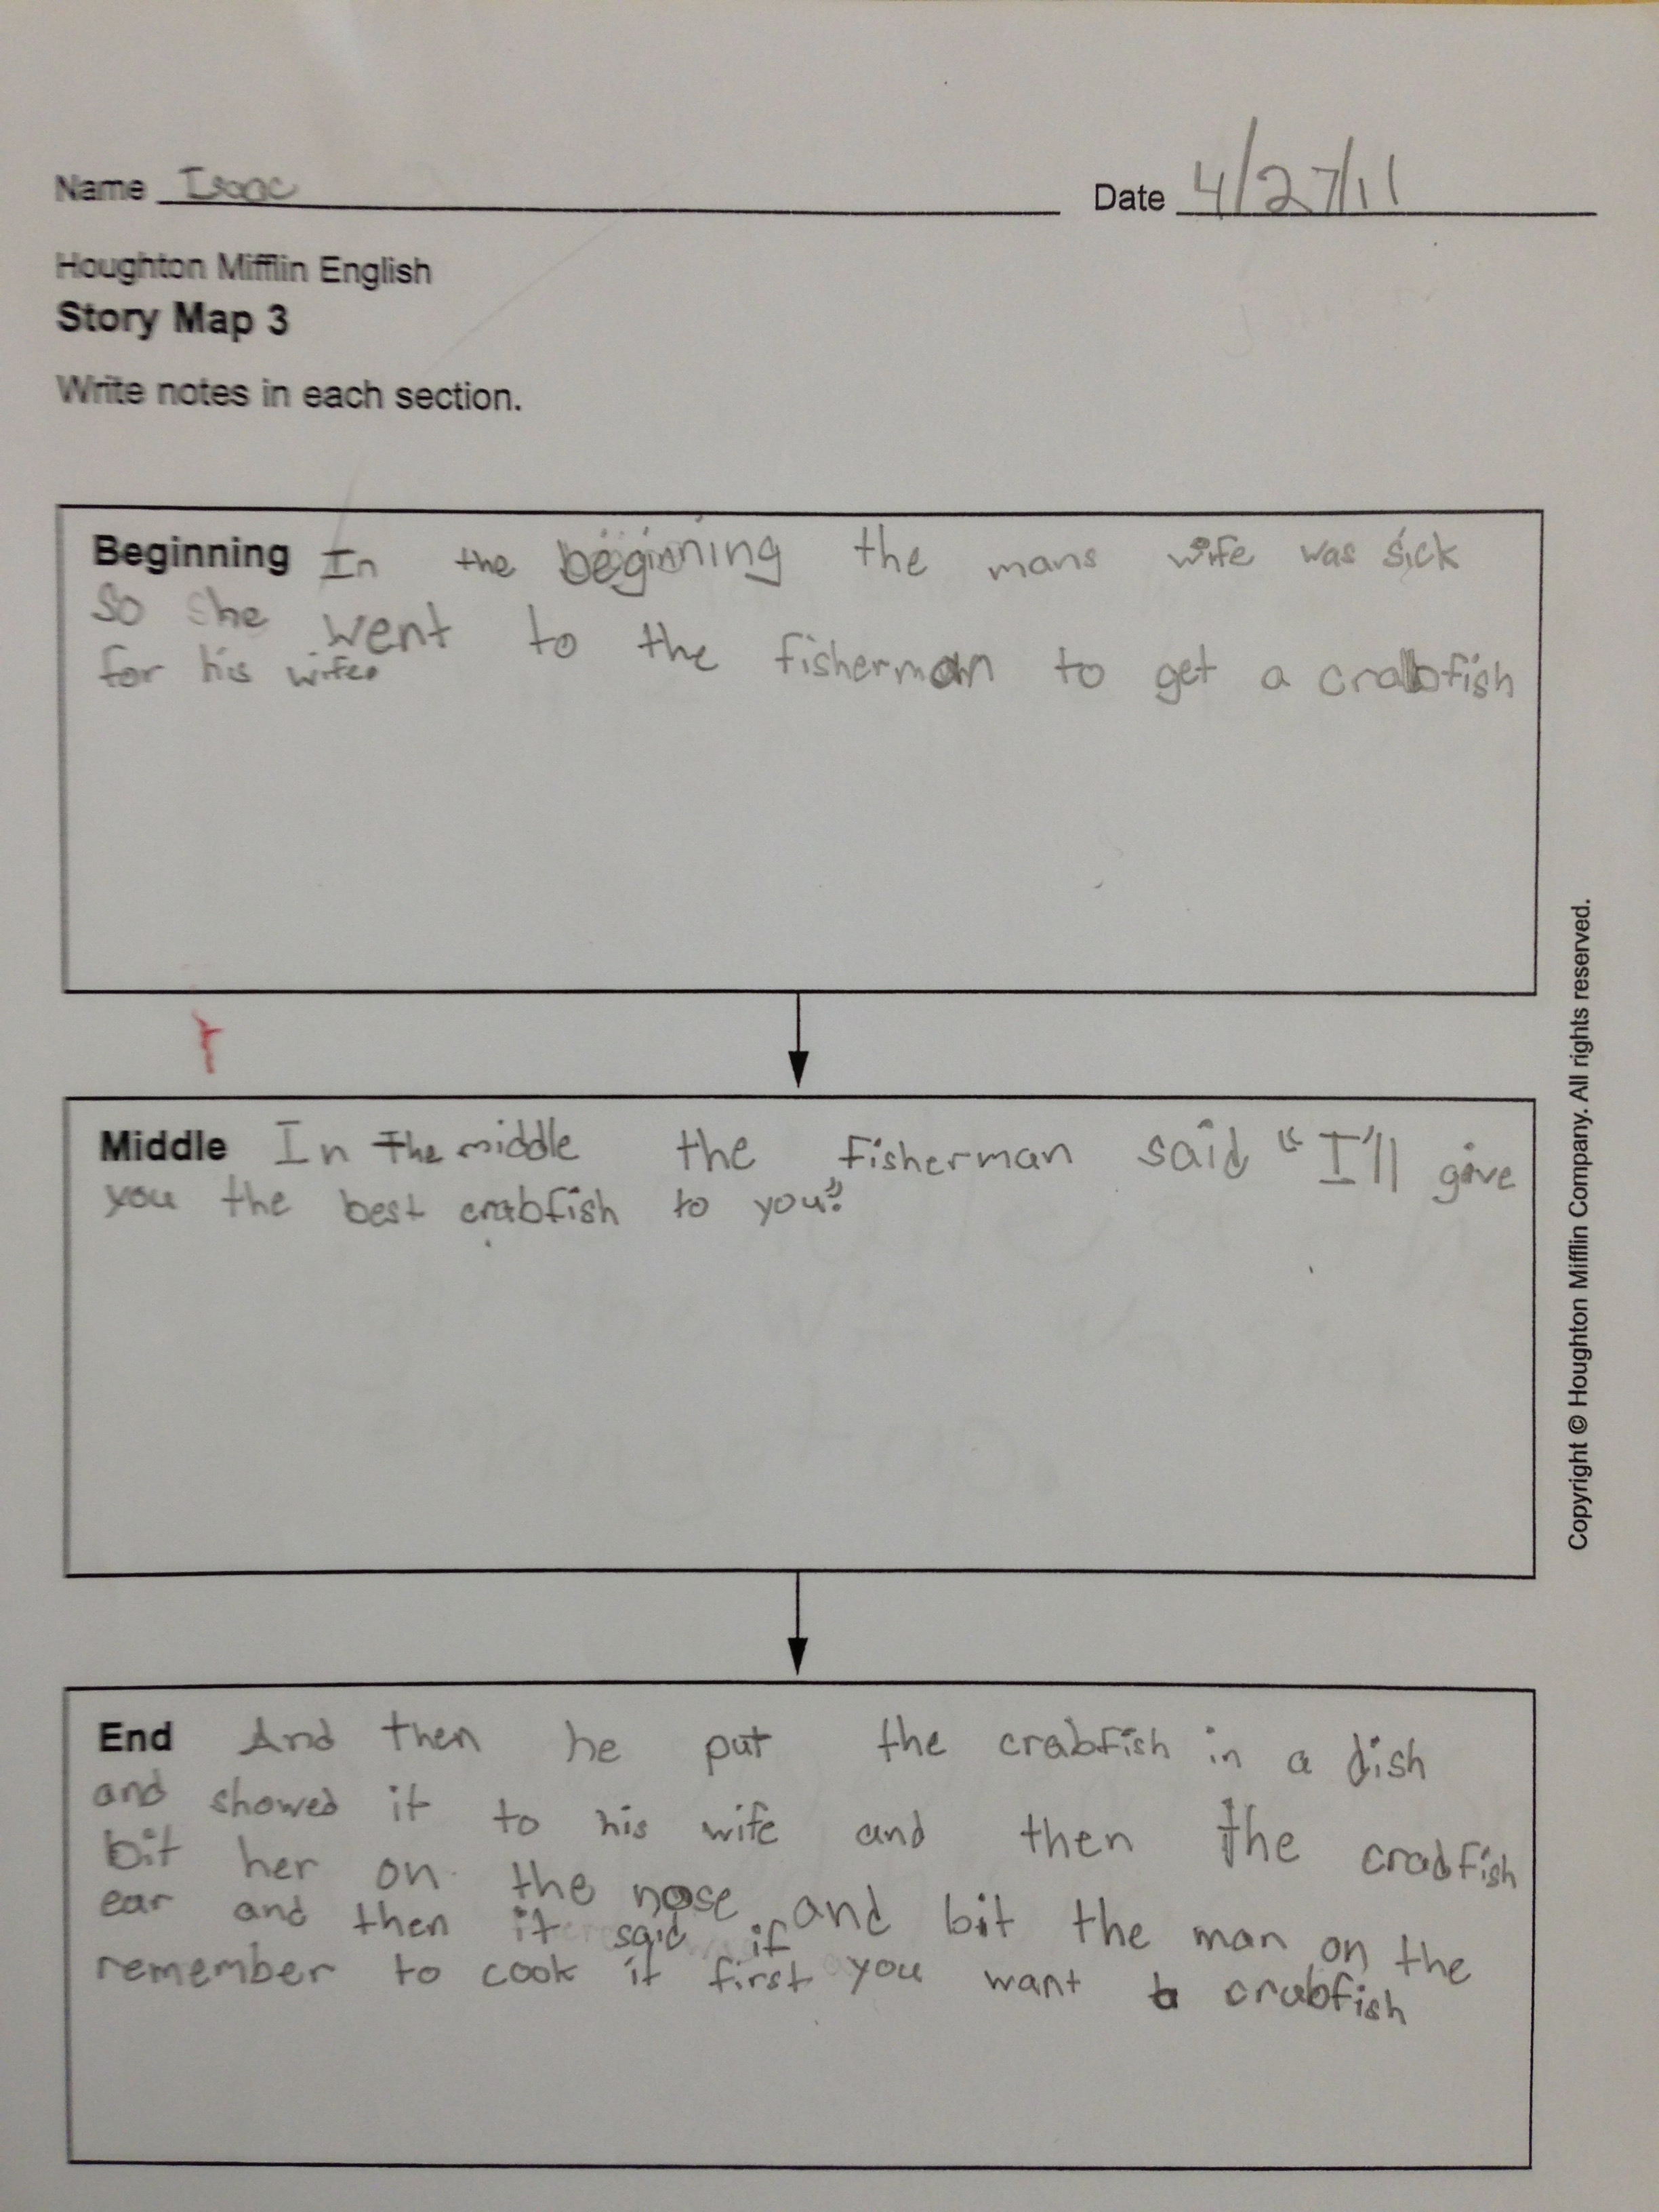 Name Isaac
Date 4/27/11
Houghton Mifflin English
Story Map 3
Write notes in each section.
Beginning In the beginning the mans wife was sick
So She went to the fisherman to get a crabfish
for his wife.
Middle In The middle the fisherman said "I'll give
you the best crabfish to you."
End And then he put the crabfish in a dish
and showed it to his wife and then the cradfish
bit her on the nose and bit the man on the
ear and then it said if you want a crabfish
remember to cook it first
Copyright © Houghton Mifflin Company. All rights reserved.